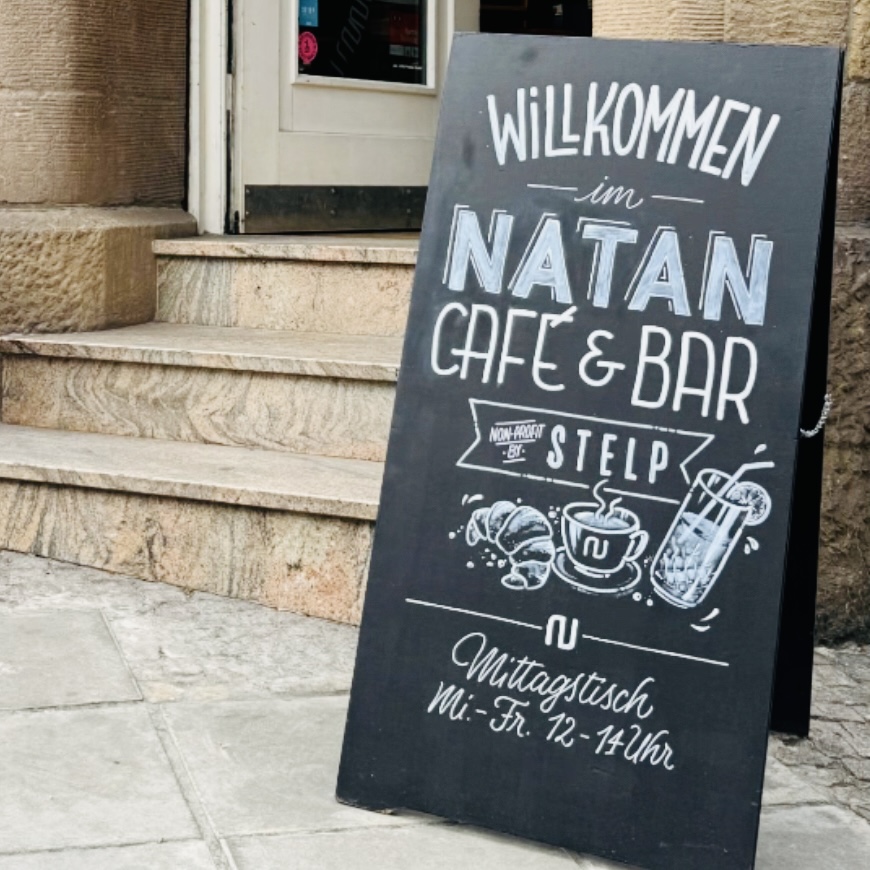 WiLLKOMMEN
im
NATAN
CAFÉ & BAR
NON-PROFIT
·BY·
STELP
Mittagstisch
Mi.-Fr. 12-14 Uhr